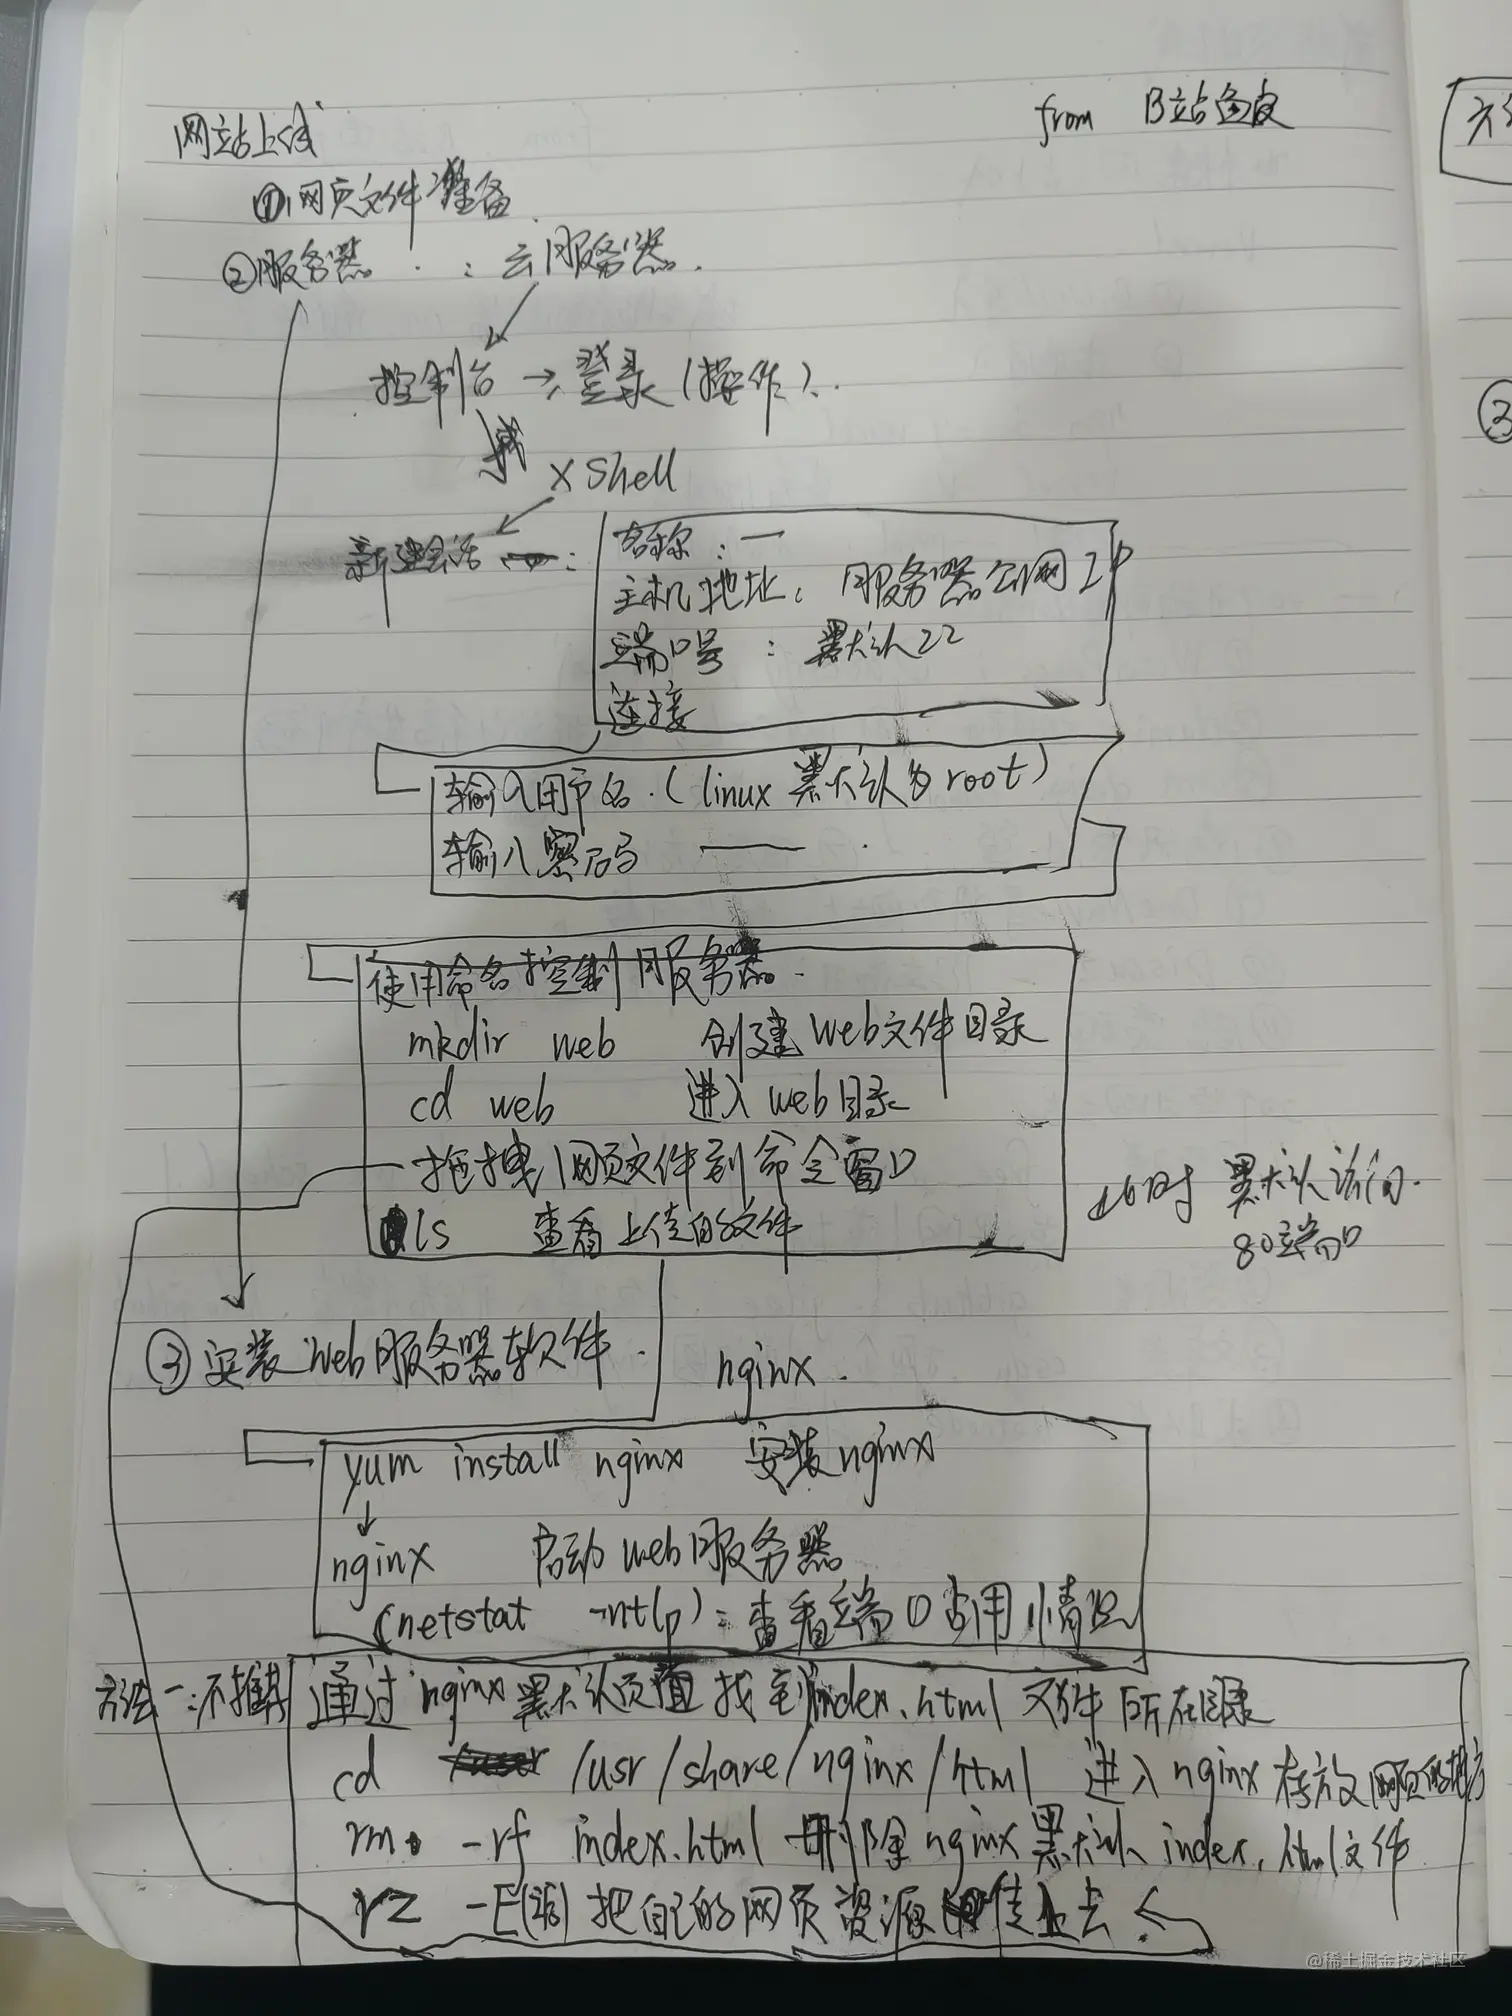 网站上线
from B站鱼皮
①网页文件准备
②服务器 : 云服务器.
控制台 → 登录(操作).
或
XShell
新建会话 :
名称:一
主机地址: 服务器公网IP
端口号 : 默认22
连接
输入用户名.(linux 默认为root)
输入密码 ——
使用命名控制服务器.
mkdir web 创建web文件目录
cd web 进入web目录
拖拽网页文件到命令窗口
ls 查看上传的文件
此时 默认访问.
80端口
③安装web服务器软件.
nginx.
yum install nginx 安装nginx
nginx 启动web服务器
(netstat -ntlp):查看端口占用情况
方法一:不推荐
通过nginx默认页面找到index.html文件所在目录
cd /usr/share/nginx/html 进入nginx存放网页的地方
rm -rf index.html 删除nginx默认index.html文件
rz -E(或) 把自己的网页资源传上去
方
③
@稀土掘金技术社区